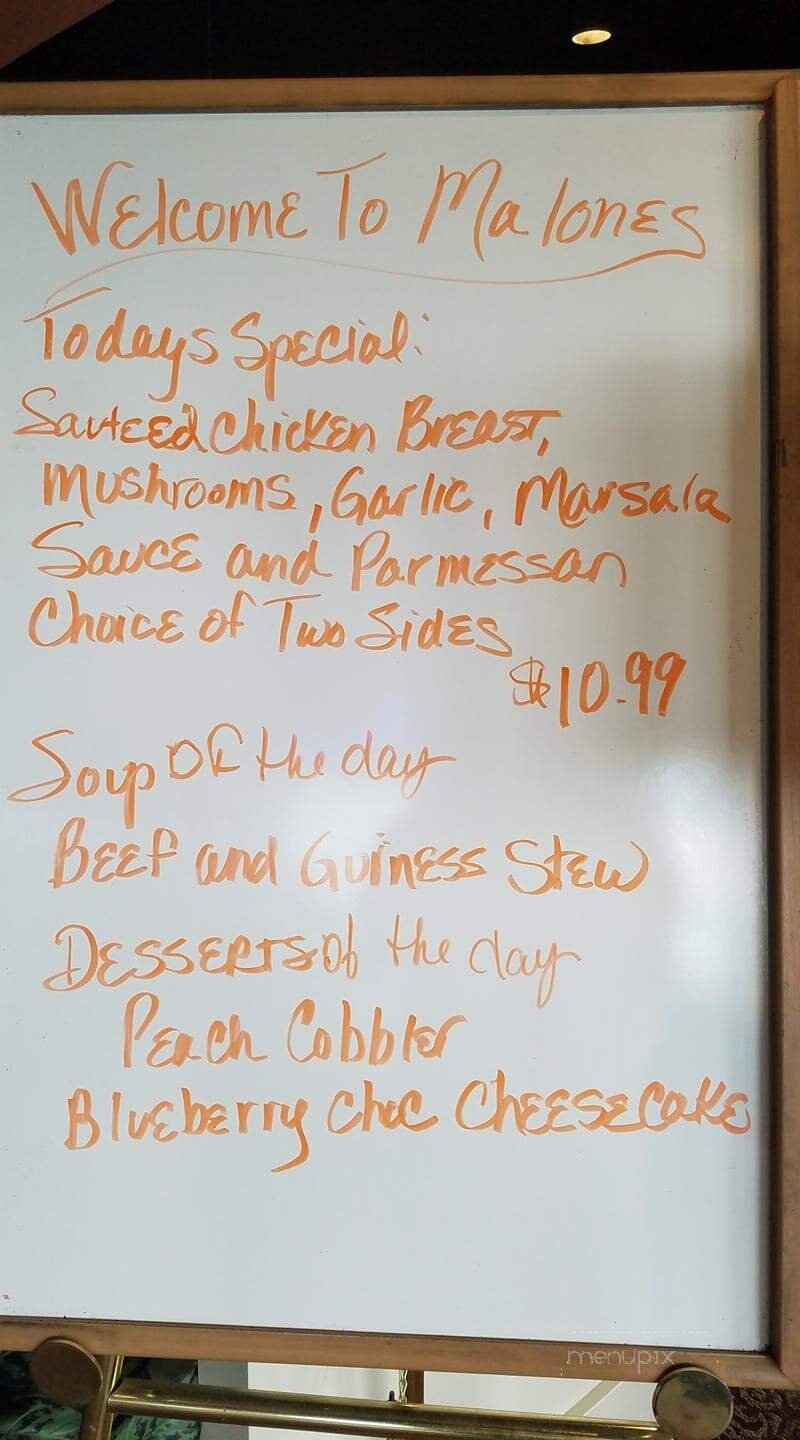 Welcome To Malones
Todays Special:
Sauteed Chicken Breast,
Mushrooms, Garlic, Marsala
Sauce and Parmessan
Choice of Two Sides
$10.99
Soup OF the day
Beef and Guiness Stew
Desserts of the day
Peach Cobbler
Blueberry Choc Cheesecake
menupix